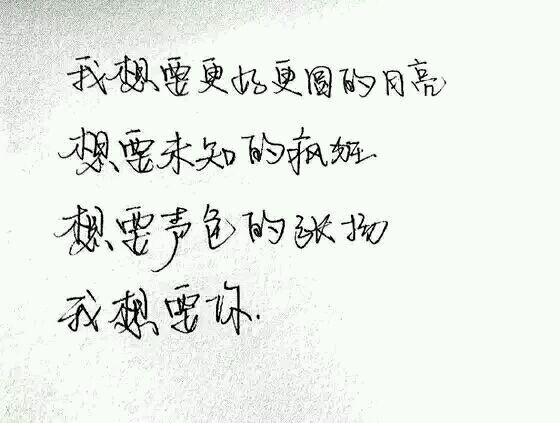 我想要更好更圆的月亮
想要未知的疯狂
想要声色的张扬
我想要你.